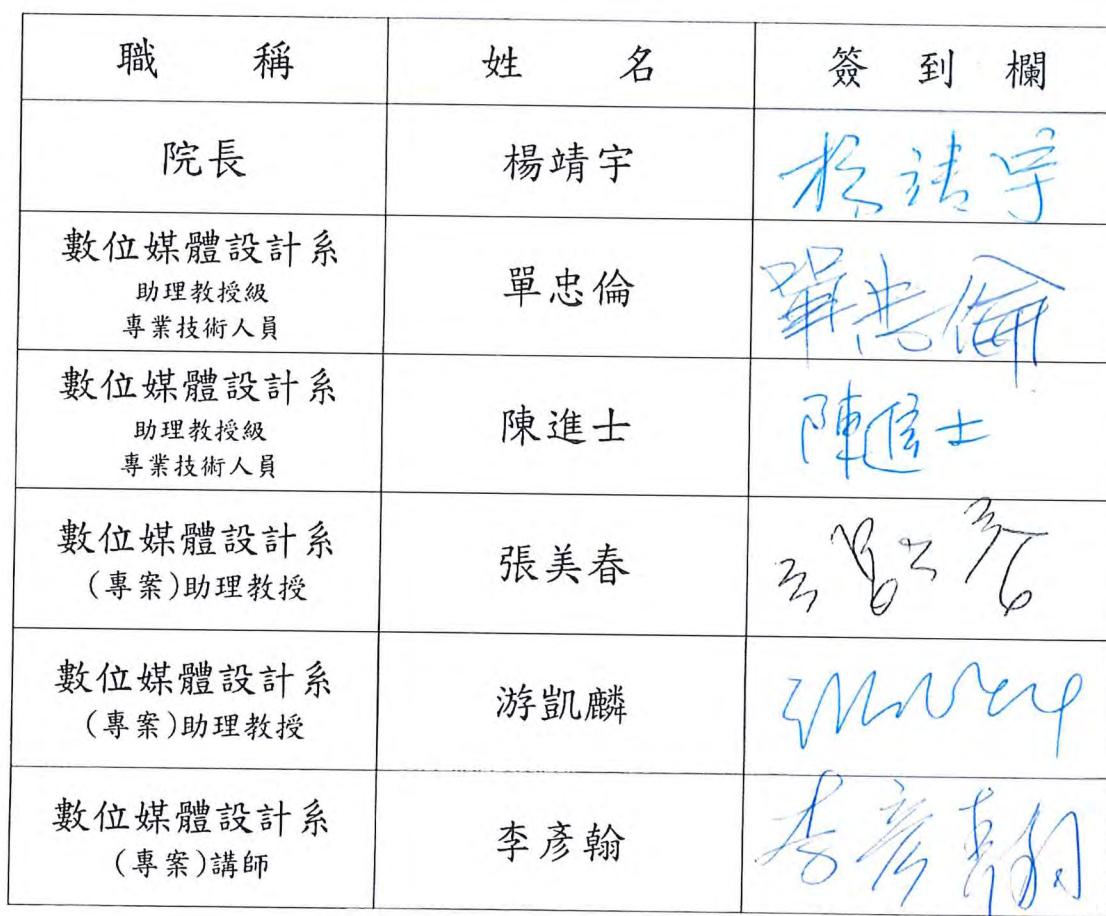 職 稱 姓 名 簽 到 欄
院長 楊靖宇 楊靖宇
數位媒體設計系
助理教授級
專業技術人員
單忠倫 單忠倫
數位媒體設計系
助理教授級
專業技術人員
陳進士 陳進士
數位媒體設計系
(專案)助理教授
張美春
數位媒體設計系
(專案)助理教授
游凱麟
數位媒體設計系
(專案)講師
李彥翰 李彥翰